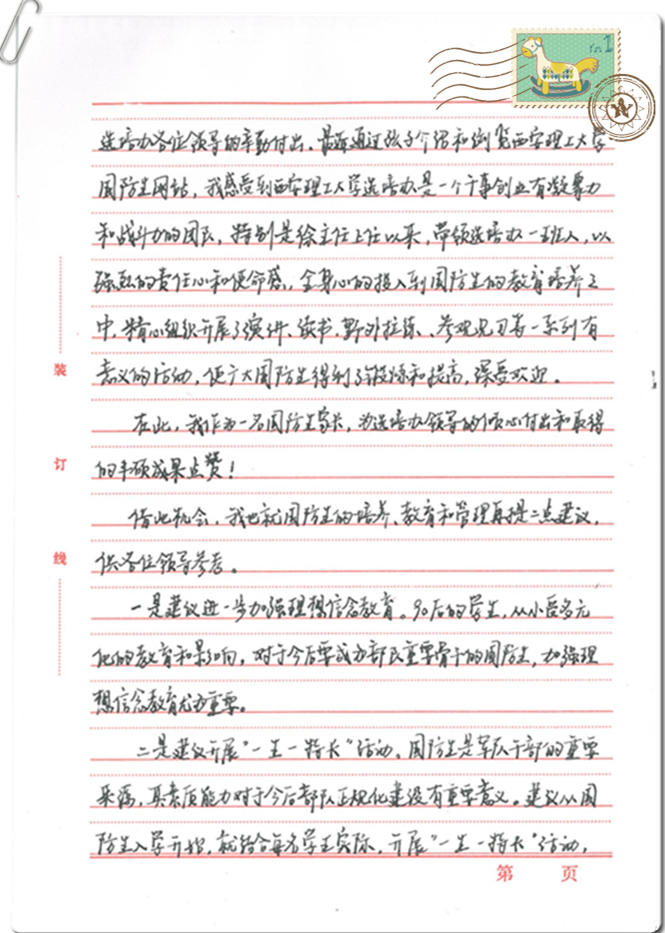 选培办各位领导的辛勤付出。最近通过孩子介绍和浏览西安理工大学
国防生网站，我感受到西安理工大学选培办是一个干事创业有凝聚力
和战斗力的团队，特别是徐主任上任以来，带领选培办一班人，以
强烈的责任心和使命感，全身心的投入到国防生的教育培养之
中，精心组织开展了演讲、读书、野外拉练、参观见习等一系列有
意义的活动，使广大国防生得到了锻炼和提高，深受欢迎。
在此，我作为一名国防生家长，为选培办领导的倾心付出和取得
的丰硕成果点赞！
借此机会，我也就国防生的培养、教育和管理再提二点建议，
供各位领导参考。
一是建议进一步加强理想信念教育。90后的学生，从小受多元
化的教育和影响，对于今后要成为部队重要骨干的国防生，加强理
想信念教育尤为重要。
二是建议开展“一生一特长”活动。国防生是军队干部的重要
来源，其素质能力对于今后部队正规化建设有重要意义。建议从国
防生入学开始，就结合每名学生实际，开展“一生一特长”活动，
装
订
线
第 页